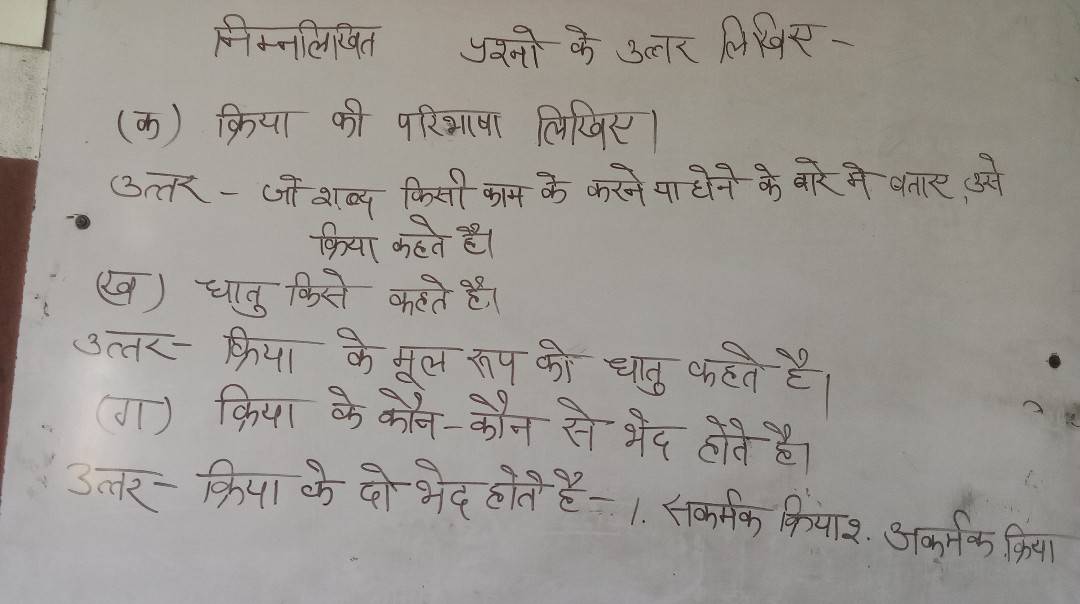 निम्नलिखित प्रश्नो के उत्तर लिखिए -
(क) क्रिया की परिभाषा लिखिए।
उत्तर - जो शब्द किसी काम के करने या होने के बारे मे बताए, उसे
क्रिया कहते है।
(ख) धातु किसे कहते है।
उत्तर - क्रिया के मूल रूप को धातु कहते है।
(ग) क्रिया के कौन-कौन से भेद होते है।
उत्तर - क्रिया के दो भेद होते है - 1. सकर्मक क्रिया 2. अकर्मक क्रिया